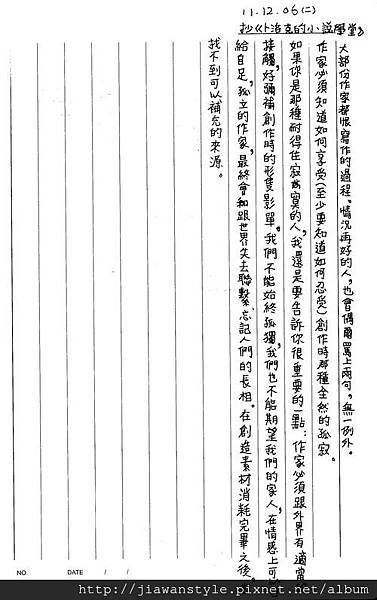 11.12.06(二)
抄《卜洛克的小說學堂》
大部份作家都恨寫作的過程。情況再好的人，也會偶爾罵上兩句，無一例外。
作家必須知道如何享受(至少要知道如何忍受)創作時那種全然的孤寂。
如果你是那種耐得住寂寞的人，我還是要告訴你很重要的一點：作家必須跟外界有適當
接觸，好彌補創作時的形隻影單。我們不能始終孤獨，我們也不能期望我們的家人，在情感上可
給自足，孤立的作家，最終會跟世界失去聯繫、忘記人們的長相。在創造素材消耗完畢之後，
找不到可以補充的來源。
NO. DATE / /
http://jiawanstyle.pixnet.net/album